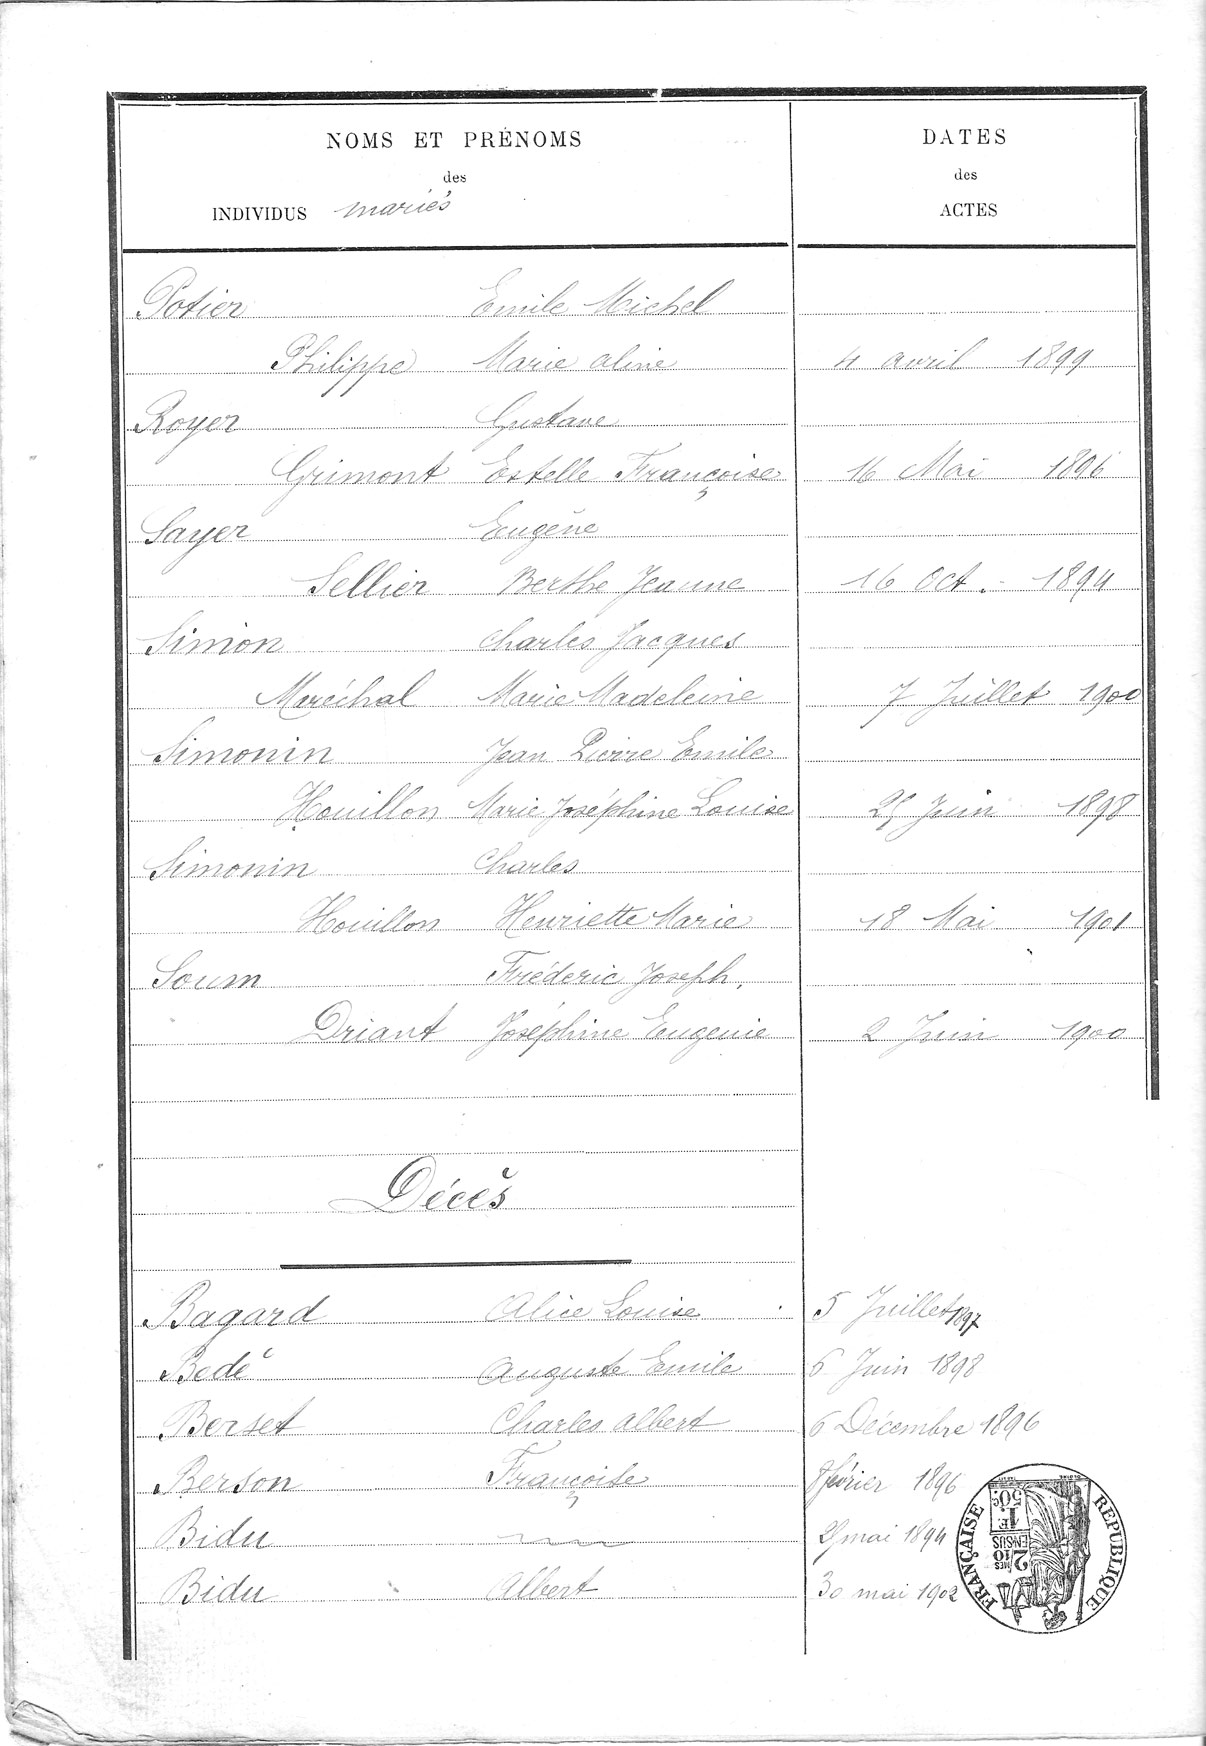 NOMS ET PRÉNOMS
des
INDIVIDUS mariés
DATES
des
ACTES
Potier Emile Michel
Philippe Marie Aline 4 avril 1899
Royer Gustave
Grimont Estelle Françoise 16 Mai 1896
Sayer Eugène
Sellier Berthe Jeanne 16 Oct. 1894
Simon Charles Jacques
Maréchal Marie Madeleine 7 Juillet 1900
Simonin Jean Pierre Emile
Houillon Marie Joséphine Louise 25 Juin 1898
Simonin Charles
Houillon Henriette Marie 18 Mai 1901
Soum Fréderic Joseph,
Driant Joséphine Eugenie 2 Juin 1900
Décès
Bagard Alice Louise 5 Juillet 1897
Bedé Auguste Emile 6 Juin 1898
Berset Charles Albert 6 Décembre 1896
Berson Françoise 8 février 1896
Bidu mai 1894
Bidu Albert 30 mai 1902
RÉPUBLIQUE FRANÇAISE
1F 50c
2/10MES
EN SUS